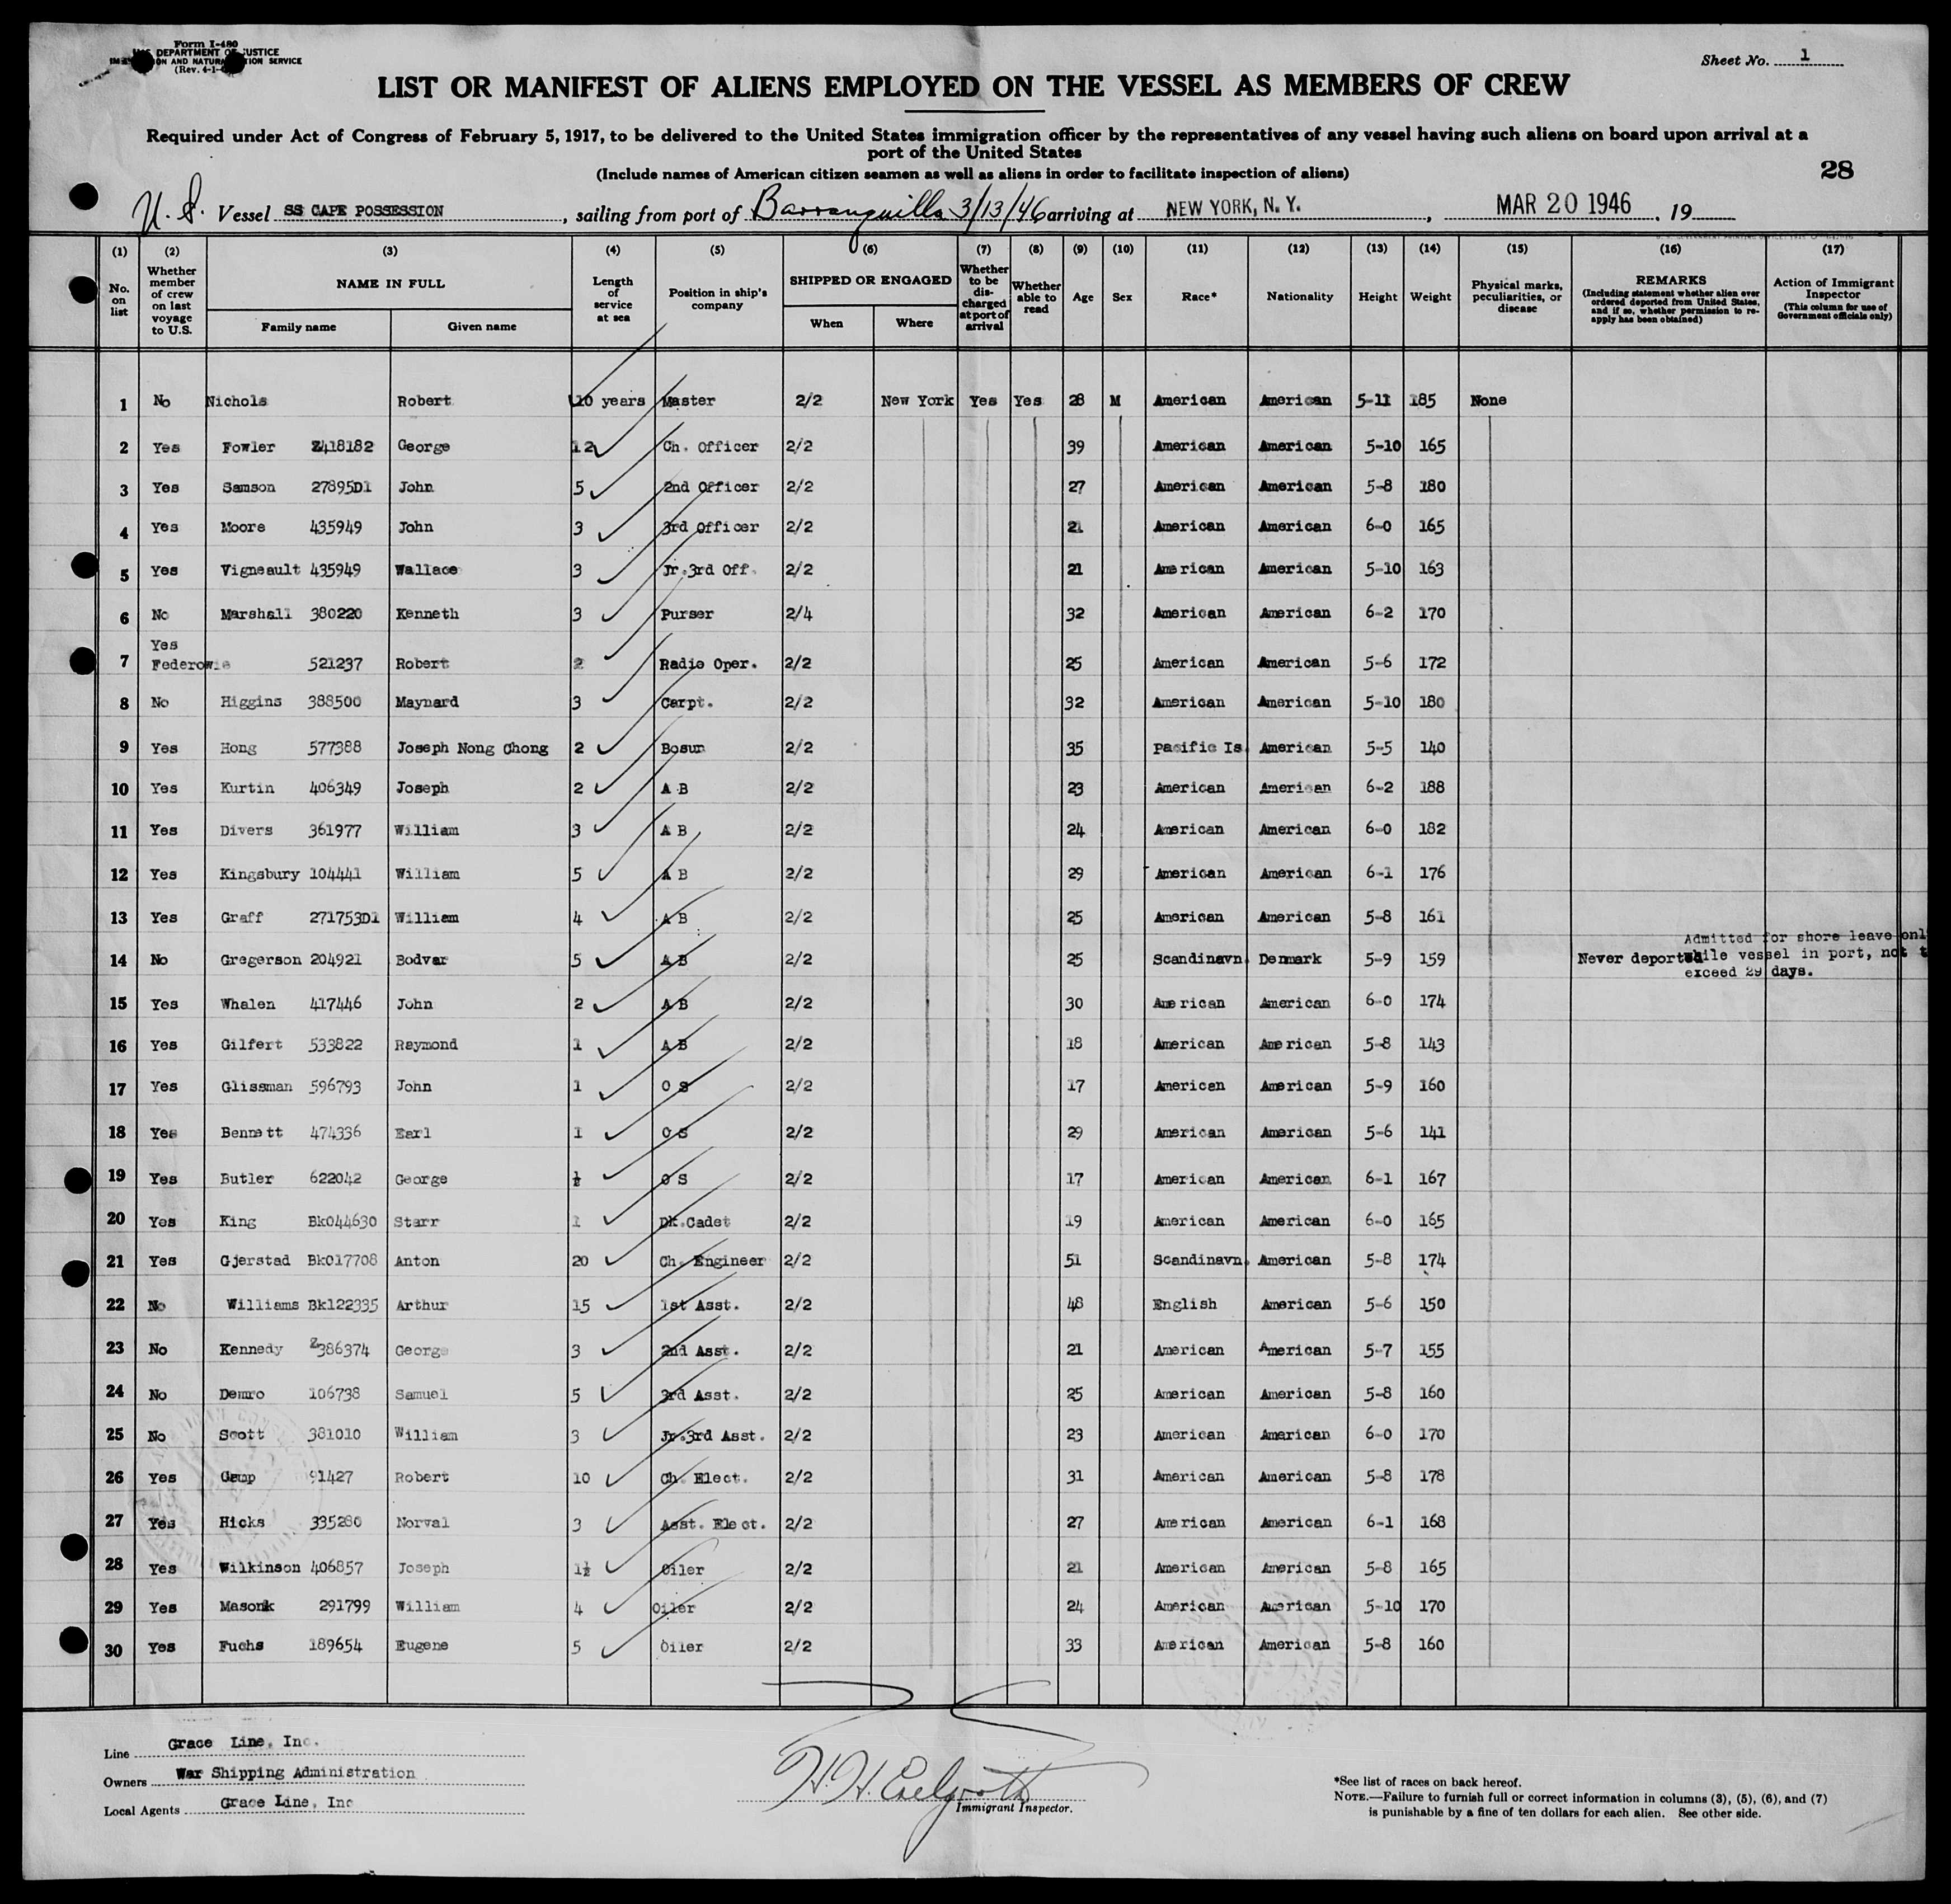 Form I-480
U.S. DEPARTMENT OF JUSTICE
IMMIGRATION AND NATURALIZATION SERVICE
(Rev. 4-1-
Sheet No. 1
LIST OR MANIFEST OF ALIENS EMPLOYED ON THE VESSEL AS MEMBERS OF CREW
Required under Act of Congress of February 5, 1917, to be delivered to the United States immigration officer by the representatives of any vessel having such aliens on board upon arrival at a
port of the United States
(Include names of American citizen seamen as well as aliens in order to facilitate inspection of aliens)
28
U. S. Vessel SS CAPE POSSESSION, sailing from port of Barranquilla 3/13/46 arriving at NEW YORK, N. Y., MAR 20 1946, 19
(1) (2) (3) (4) (5) (6) (7) (8) (9) (10) (11) (12) (13) (14) (15) (16) (17)
No. on list
Whether member of crew on last voyage to U.S.
NAME IN FULL
Family name Given name
Length of service at sea
Position in ship's company
SHIPPED OR ENGAGED
When Where
Whether to be discharged at port of arrival
Whether able to read
Age
Sex
Race*
Nationality
Height
Weight
Physical marks, peculiarities, or disease
REMARKS
(Including statement whether alien ever ordered deported from United States, and if so, whether permission to reapply has been obtained)
Action of Immigrant Inspector
(This column for use of Government officials only)
1 No Nichols Robert 10 years Master 2/2 New York Yes Yes 28 M American American 5-11 185 None
2 Yes Fowler Z418182 George 12 Ch. Officer 2/2 39 American American 5-10 165
3 Yes Samson 27895D1 John 5 2nd Officer 2/2 27 American American 5-8 180
4 Yes Moore 435949 John 3 3rd Officer 2/2 21 American American 6-0 165
5 Yes Vigneault 435949 Wallace 3 Jr.3rd Off. 2/2 21 American American 5-10 163
6 No Marshall 380220 Kenneth 3 Purser 2/4 32 American American 6-2 170
7 Yes Federowie 521237 Robert 2 Radio Oper. 2/2 25 American American 5-6 172
8 No Higgins 388500 Maynard 3 Carpt. 2/2 32 American American 5-10 180
9 Yes Hong 577388 Joseph Nong Chong 2 Bosun 2/2 35 Pacific Is. American 5-5 140
10 Yes Kurtin 406349 Joseph 2 A B 2/2 23 American American 6-2 188
11 Yes Divers 361977 William 3 A B 2/2 24 American American 6-0 182
12 Yes Kingsbury 104441 William 5 A B 2/2 29 American American 6-1 176
13 Yes Graff 271753D1 William 4 A B 2/2 25 American American 5-8 161
14 No Gregerson 204921 Bodvar 5 A B 2/2 25 Scandinavn. Denmark 5-9 159 Never deported Admitted for shore leave onl
while vessel in port, not t
exceed 29 days.
15 Yes Whalen 417446 John 2 A B 2/2 30 American American 6-0 174
16 Yes Gilfert 533822 Raymond 1 A B 2/2 18 American American 5-8 143
17 Yes Glissman 596793 John 1 O S 2/2 17 American American 5-9 160
18 Yes Bennett 474336 Earl 1 O S 2/2 29 American American 5-6 141
19 Yes Butler 622042 George ½ O S 2/2 17 American American 6-1 167
20 Yes King Bk044630 Starr 1 Dk.Cadet 2/2 19 American American 6-0 165
21 Yes Gjerstad Bk017708 Anton 20 Ch. Engineer 2/2 51 Scandinavn. American 5-8 174
22 No Williams Bk122335 Arthur 15 1st Asst. 2/2 48 English American 5-6 150
23 No Kennedy Z386374 George 3 2nd Asst. 2/2 21 American American 5-7 155
24 No Demro 106738 Samuel 5 3rd Asst. 2/2 25 American American 5-8 160
25 No Scott 381010 William 3 Jr.3rd Asst. 2/2 23 American American 6-0 170
26 Yes Gamp 91427 Robert 10 Ch. Elect. 2/2 31 American American 5-8 178
27 Yes Hicks 335280 Norval 3 Asst. Elect. 2/2 27 American American 6-1 168
28 Yes Wilkinson 406857 Joseph 1½ Oiler 2/2 21 American American 5-8 165
29 Yes Masonk 291799 William 4 Oiler 2/2 24 American American 5-10 170
30 Yes Fuchs 189654 Eugene 5 Oiler 2/2 33 American American 5-8 160
Line Grace Line, Inc.
Owners War Shipping Administration
Local Agents Grace Line, Inc
H. H.
Immigrant Inspector.
*See list of races on back hereof.
NOTE.—Failure to furnish full or correct information in columns (3), (5), (6), and (7)
is punishable by a fine of ten dollars for each alien. See other side.